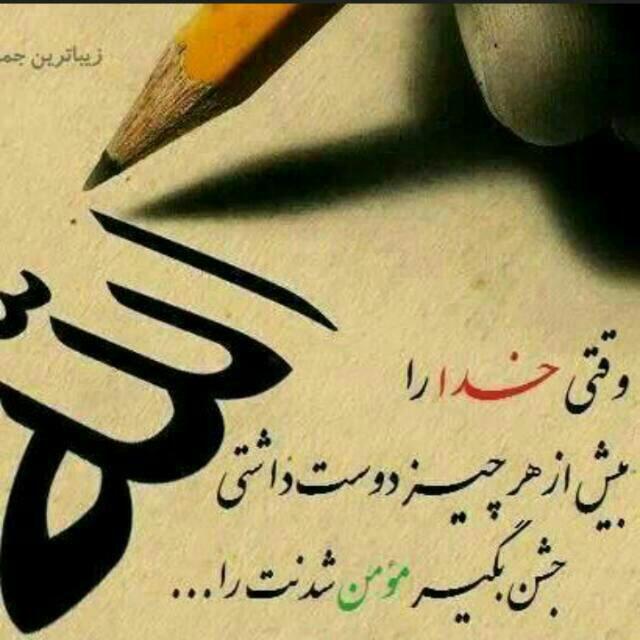 زیباترین
الله
وقتی خدا را
بیش از هر چیز دوست داشتی
جشن بگیر مؤمن شدنت را...